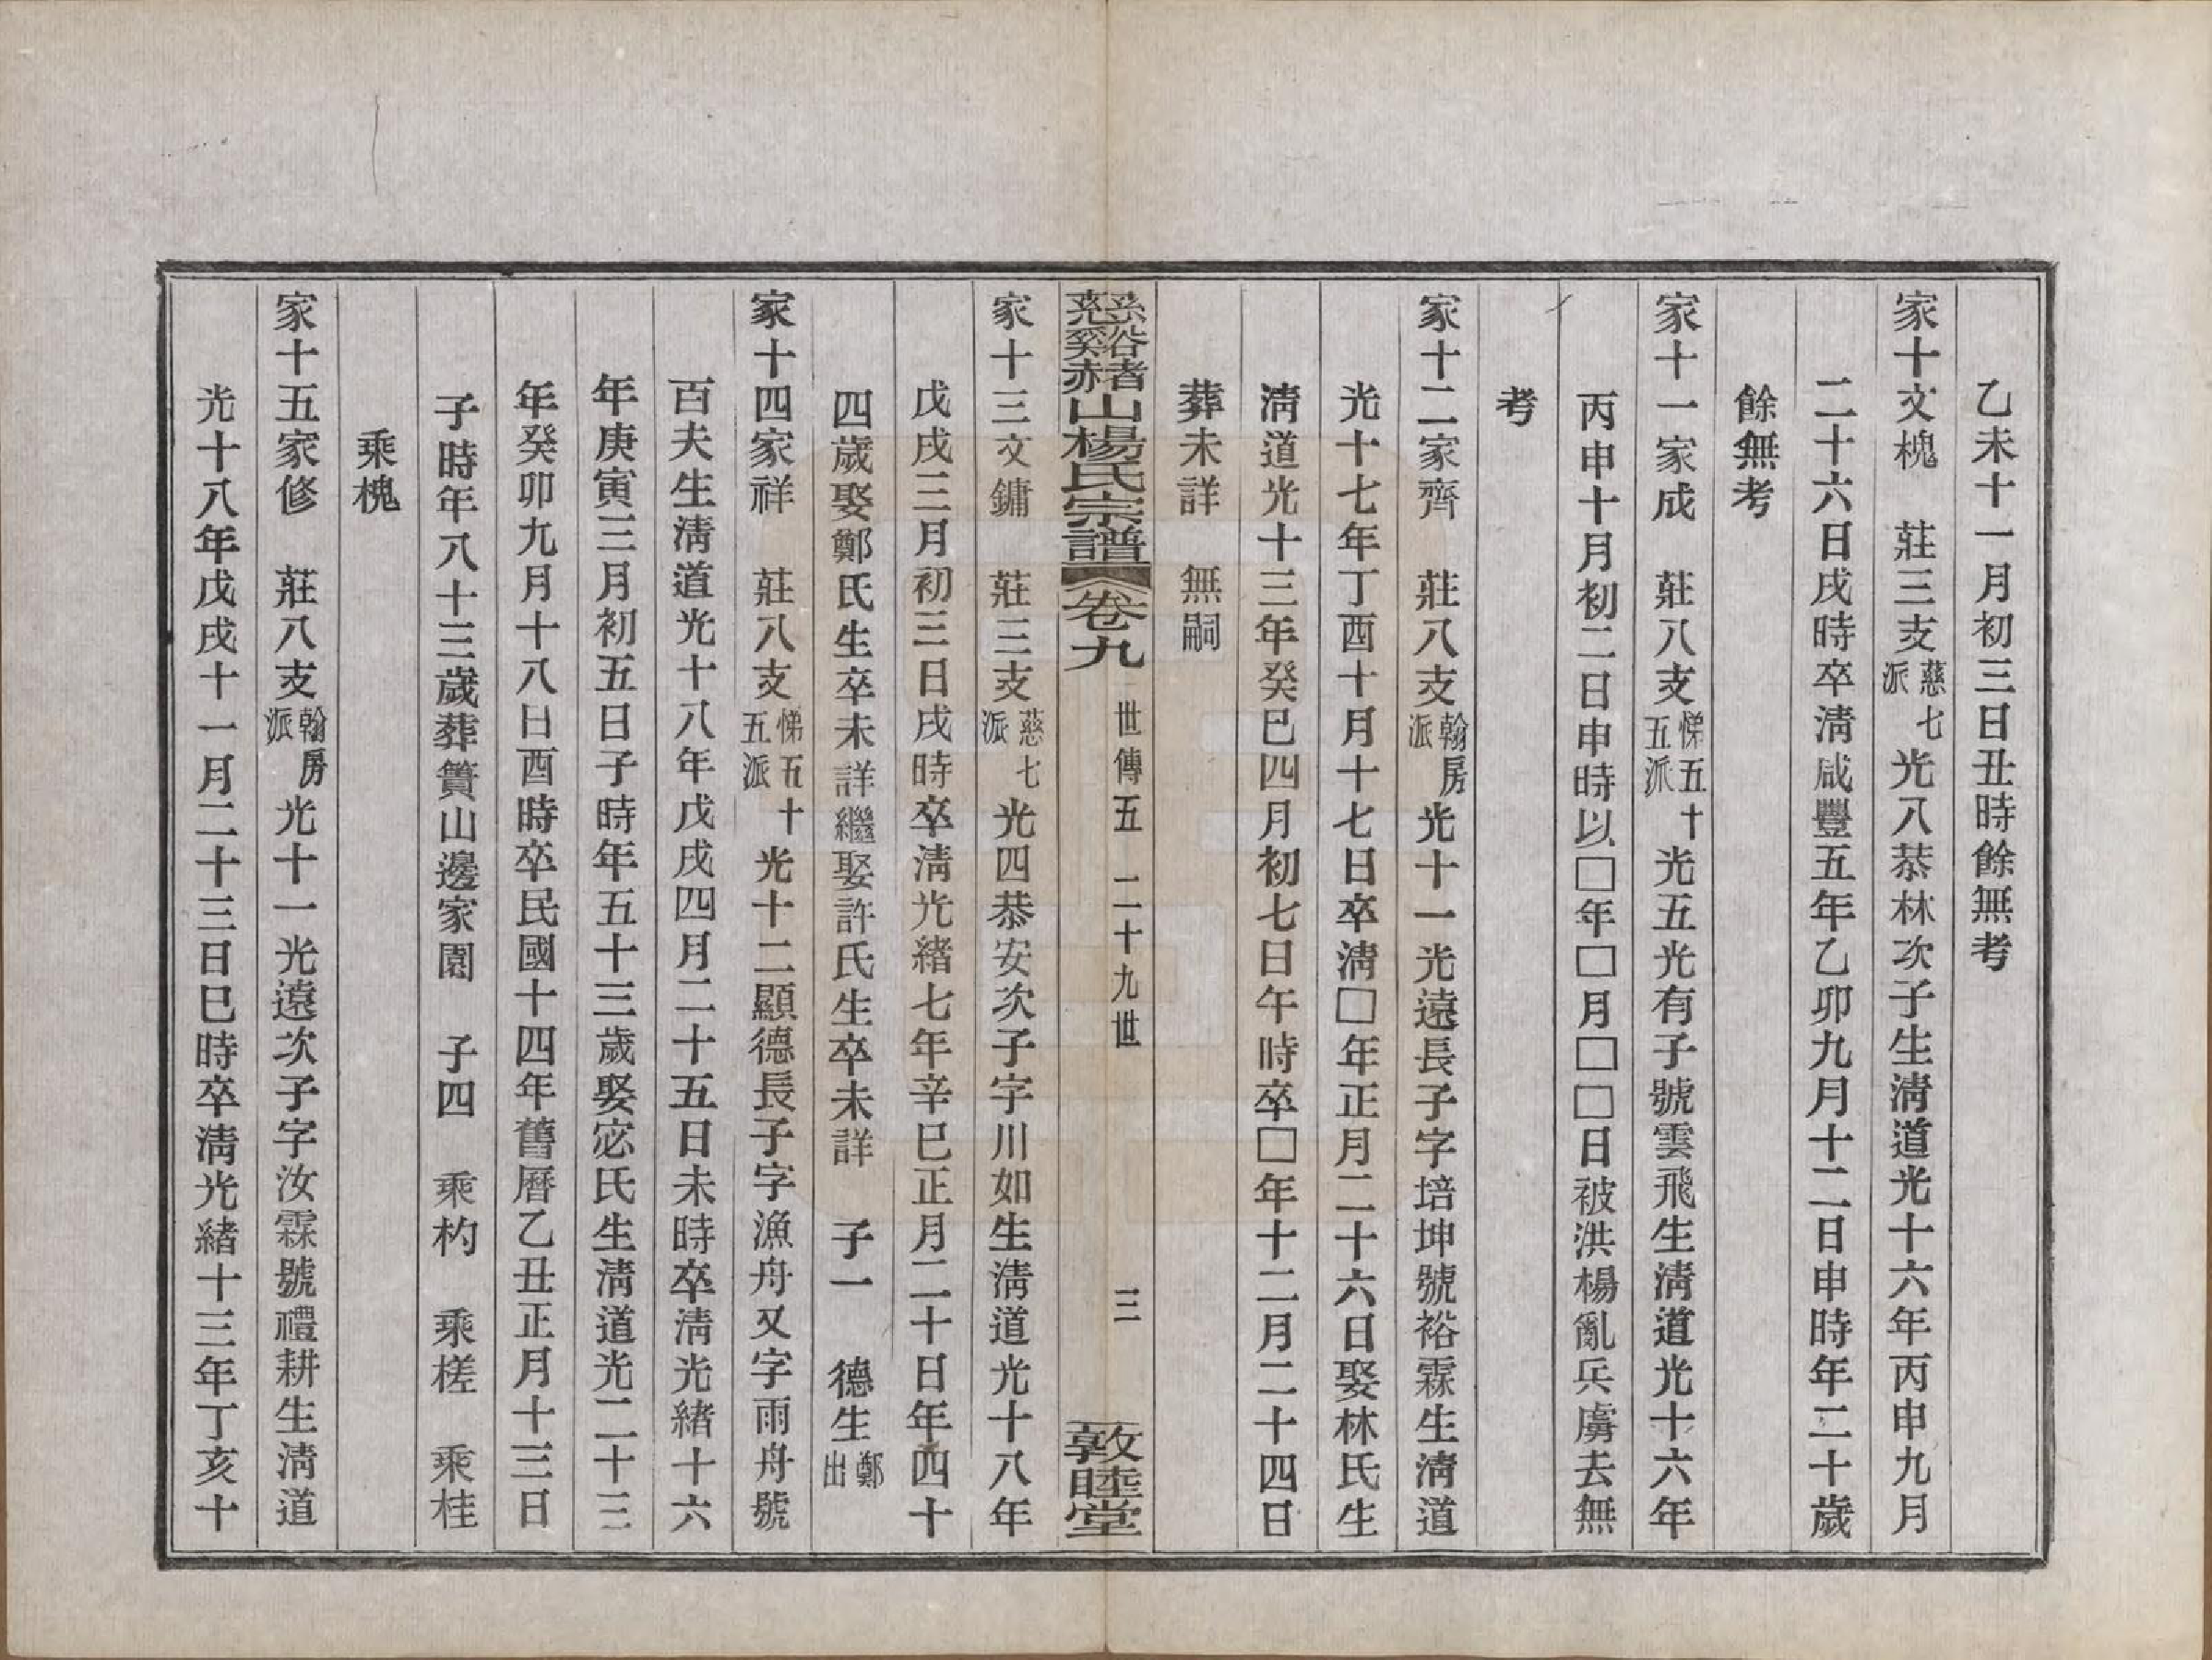 乙未十一月初三日丑時餘無考
家十文槐　莊三支慈七派光八恭林次子生淸道光十六年丙申九月
二十六日戌時卒淸咸豐五年乙卯九月十二日申時年二十歲
餘無考
家十一家成　莊八支悌五十五派光五光有子號雲飛生淸道光十六年
丙申十月初二日申時以□年□月□□日被洪楊亂兵虜去無
考
家十二家齊　莊八支翰房派光十一光遠長子字培坤號裕霖生淸道
光十七年丁酉十月十七日卒淸□年正月二十六日娶林氏生
淸道光十三年癸巳四月初七日午時卒□年十二月二十四日
葬未詳　無嗣
慈谿赭山楊氏宗譜　卷九　世傳五　二十九世　三　敦睦堂
家十三文鏞　莊三支慈七派光四恭安次子字川如生淸道光十八年
戊戌三月初三日戌時卒淸光緒七年辛巳正月二十日年四十
四歲娶鄭氏生卒未詳繼娶許氏生卒未詳　子一　德生鄭出
家十四家祥　莊八支悌五十五派光十二顯德長子字漁舟又字雨舟號
百夫生淸道光十八年戊戌四月二十五日未時卒淸光緒十六
年庚寅三月初五日子時年五十三歲娶宓氏生淸道光二十三
年癸卯九月十八日酉時卒民國十四年舊曆乙丑正月十三日
子時年八十三歲葬簣山邊家園　子四　乘杓　乘槎　乘桂
乘槐
家十五家修　莊八支翰房派光十一光遠次子字汝霖號禮耕生淸道
光十八年戊戌十一月二十三日巳時卒淸光緒十三年丁亥十